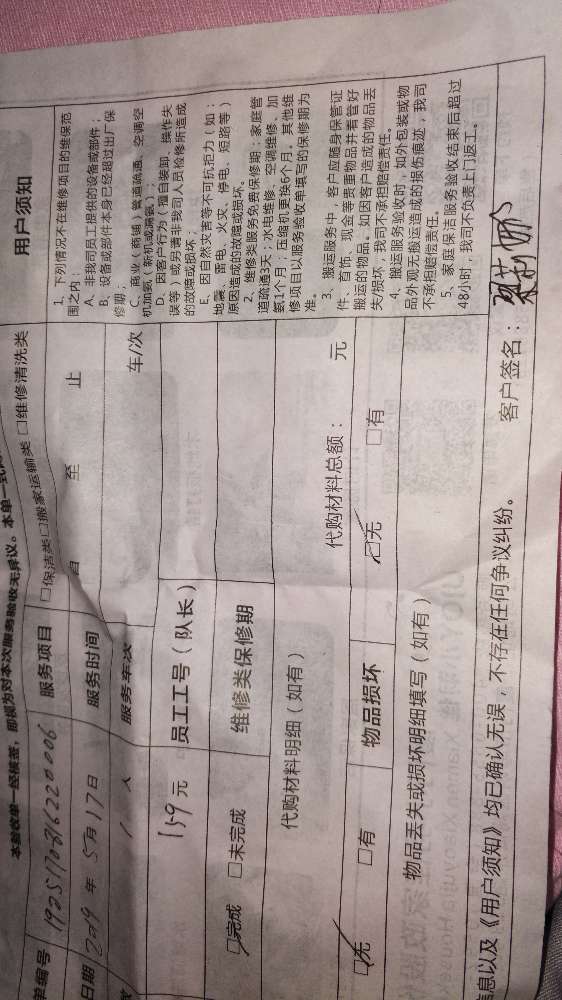 本验收单一经核签，即视为对本次服务验收无异议。本单一式
单编号 1925117081622000 6 服务项目 □保洁类 □搬家运输类 □维修清洗类
日期 2019 年 5月17日 服务时间 自 至 止
1 人 服务车次 车/次
159 元 员工工号（队长）
□完成 □未完成 维修类保修期
代购材料明细（如有） 代购材料总额： 元
□无 □有 物品损坏 □无 □有
物品丢失或损坏明细填写（如有）
用户须知
1、下列情况不在维修项目的维保范
围之内：
A、非我司员工提供的设备或部件；
B、设备或部件本身已经超过出厂保
修期；
C、商业（商铺）管道疏通、空调空
机加氨（新机或漏氨）；
D、因客户行为（擅自装卸、操作失
误等）或另请非我司人员检修所造成
的故障或损坏；
E、因自然灾害等不可抗拒力（如：
地震、雷电、火灾、停电、短路等）
原因造成的故障或损坏。
2、维修类服务免费保修期：家庭管
道疏通3天；水电维修、空调维修、加
氨1个月；压缩机更换6个月。其他维
修项目以服务验收单填写的保修期为
准。
3、搬运服务中，客户应随身保管证
件、首饰、现金等贵重物品并看管好
搬运的物品。如因客户造成的物品丢
失/损坏，我司不承担赔偿责任。
4、搬运服务验收时，如外包装或物
品外观无搬运造成的损伤痕迹，我司
不承担赔偿责任。
5、家庭保洁服务验收结束后超过
48小时，我司不负责上门返工。
息以及《用户须知》均已确认无误，不存在任何争议纠纷。 客户签名：